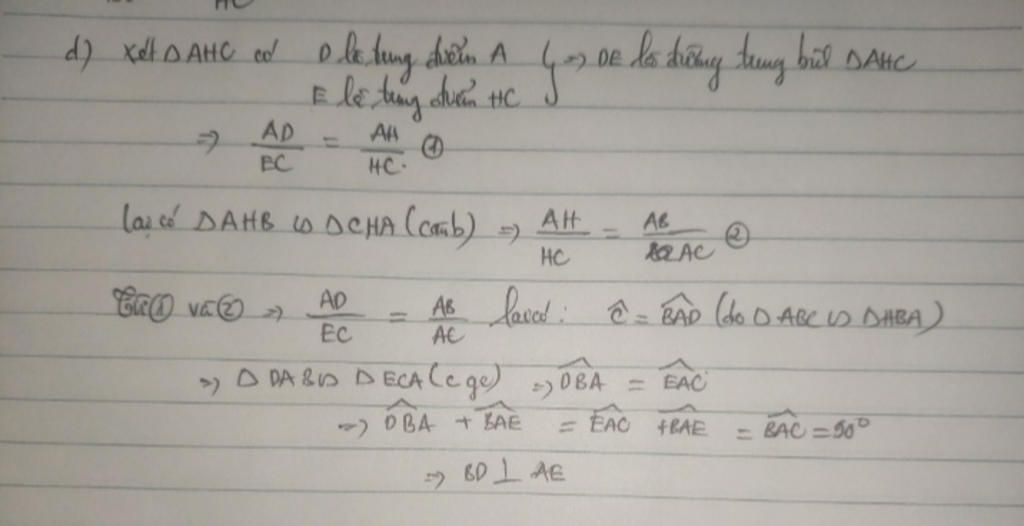 HC
d) Xét ΔAHC có D là trung điểm A } => DE là đường trung bình ΔAHC
E là trung điểm HC
=> AD/EC = AH/HC. ①
Lại có ΔAHB ∽ ΔCHA (câu b) => AH/HC = AB/AC ②
Từ ① và ② => AD/EC = AB/AC Lại có: Ĉ = BAD (do ΔABC ∽ ΔHBA)
=> ΔDAB ∽ ΔECA (c g c) => DBA = EAC
=> DBA + BAE = EAC + BAE = BAC = 90°
=> BD ⊥ AE